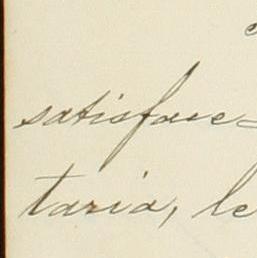 satisface=
taria, le